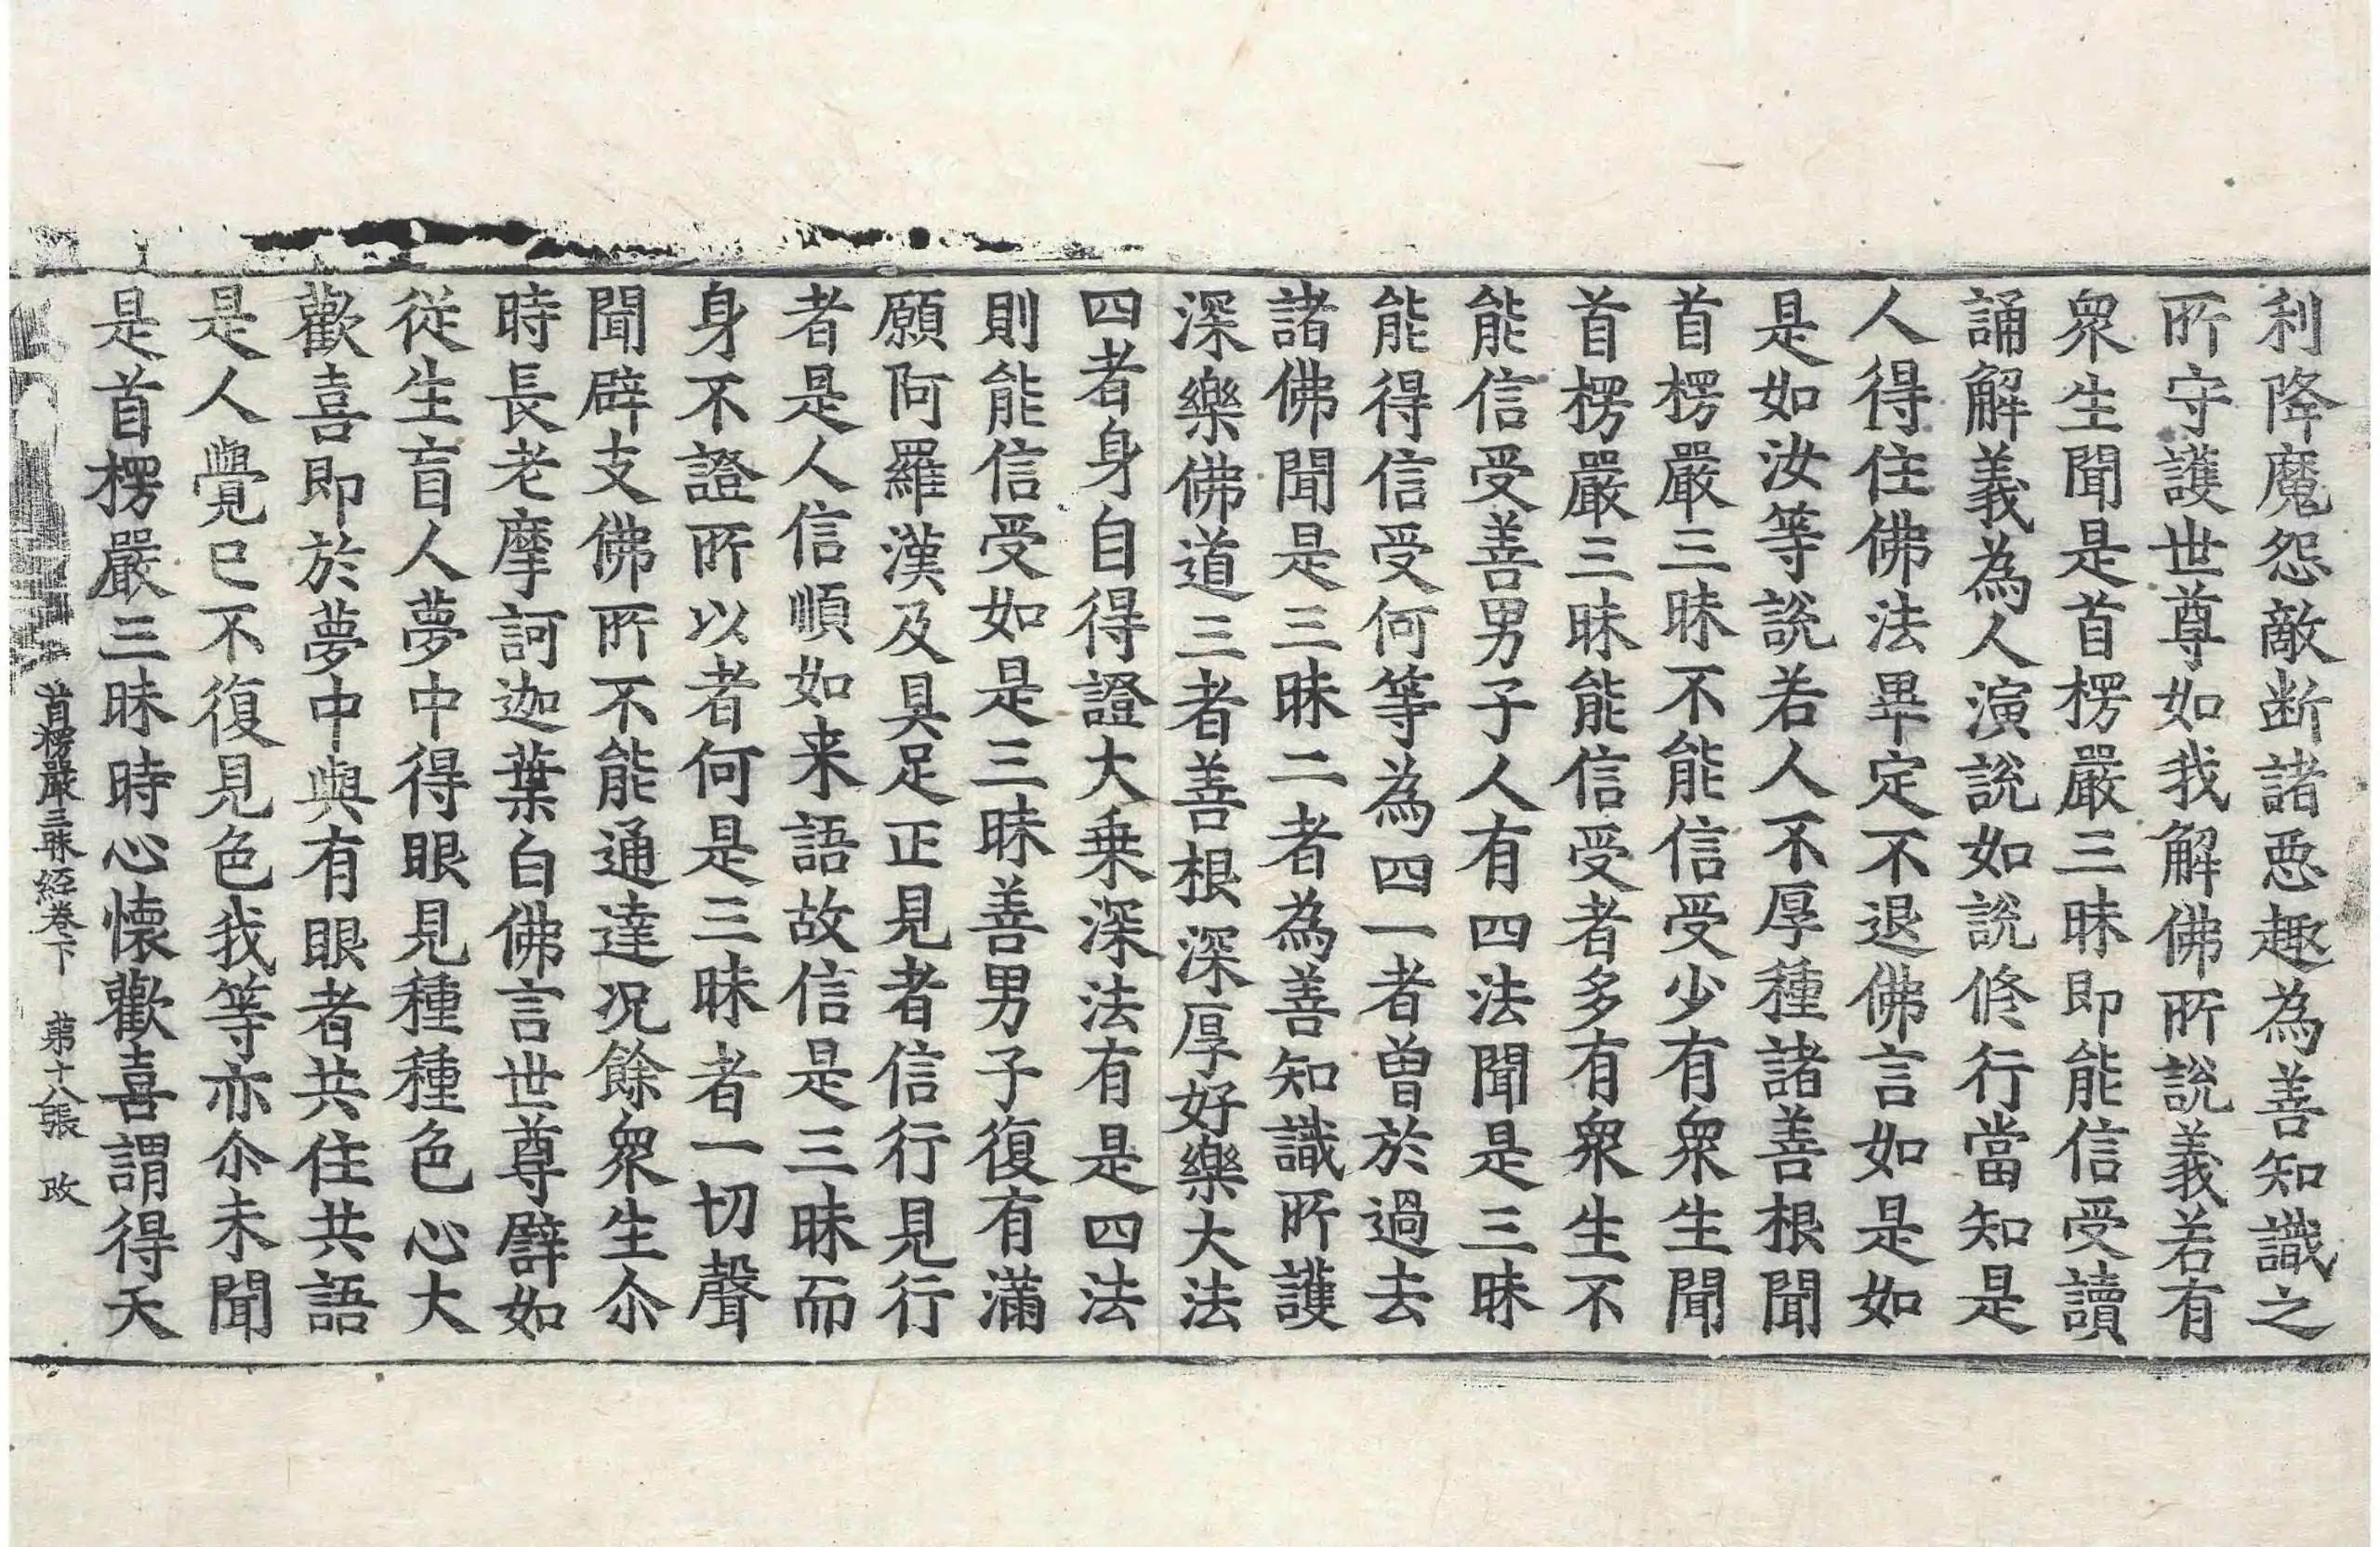 利降魔怨敵断諸惡趣為善知識之
所守護世尊如我解佛所說義若有
衆生聞是首楞嚴三昧即能信受讀
誦解義為人演說如說修行當知是
人得住佛法畢定不退佛言如是如
是如汝等說若人不厚種諸善根聞
首楞嚴三昧不能信受少有衆生聞
首楞嚴三昧能信受者多有衆生不
能信受善男子人有四法聞是三昧
能得信受何等為四一者曽於過去
諸佛聞是三昧二者為善知識所護
深樂佛道三者善根深厚好樂大法
四者身自得證大乗深法有是四法
則能信受如是三昧善男子復有滿
願阿羅漢及具足正見者信行見行
者是人信順如来語故信是三昧而
身不證所以者何是三昧者一切聲
聞辟支佛所不能通達况餘衆生尒
時長老摩訶迦葉白佛言世尊譬如
從生盲人夢中得眼見種種色心大
歡喜即於夢中與有眼者共住共語
是人覺已不復見色我等亦尒未聞
是首楞嚴三昧時心懷歡喜謂得天
首楞嚴三昧經卷下 苐十八張 改